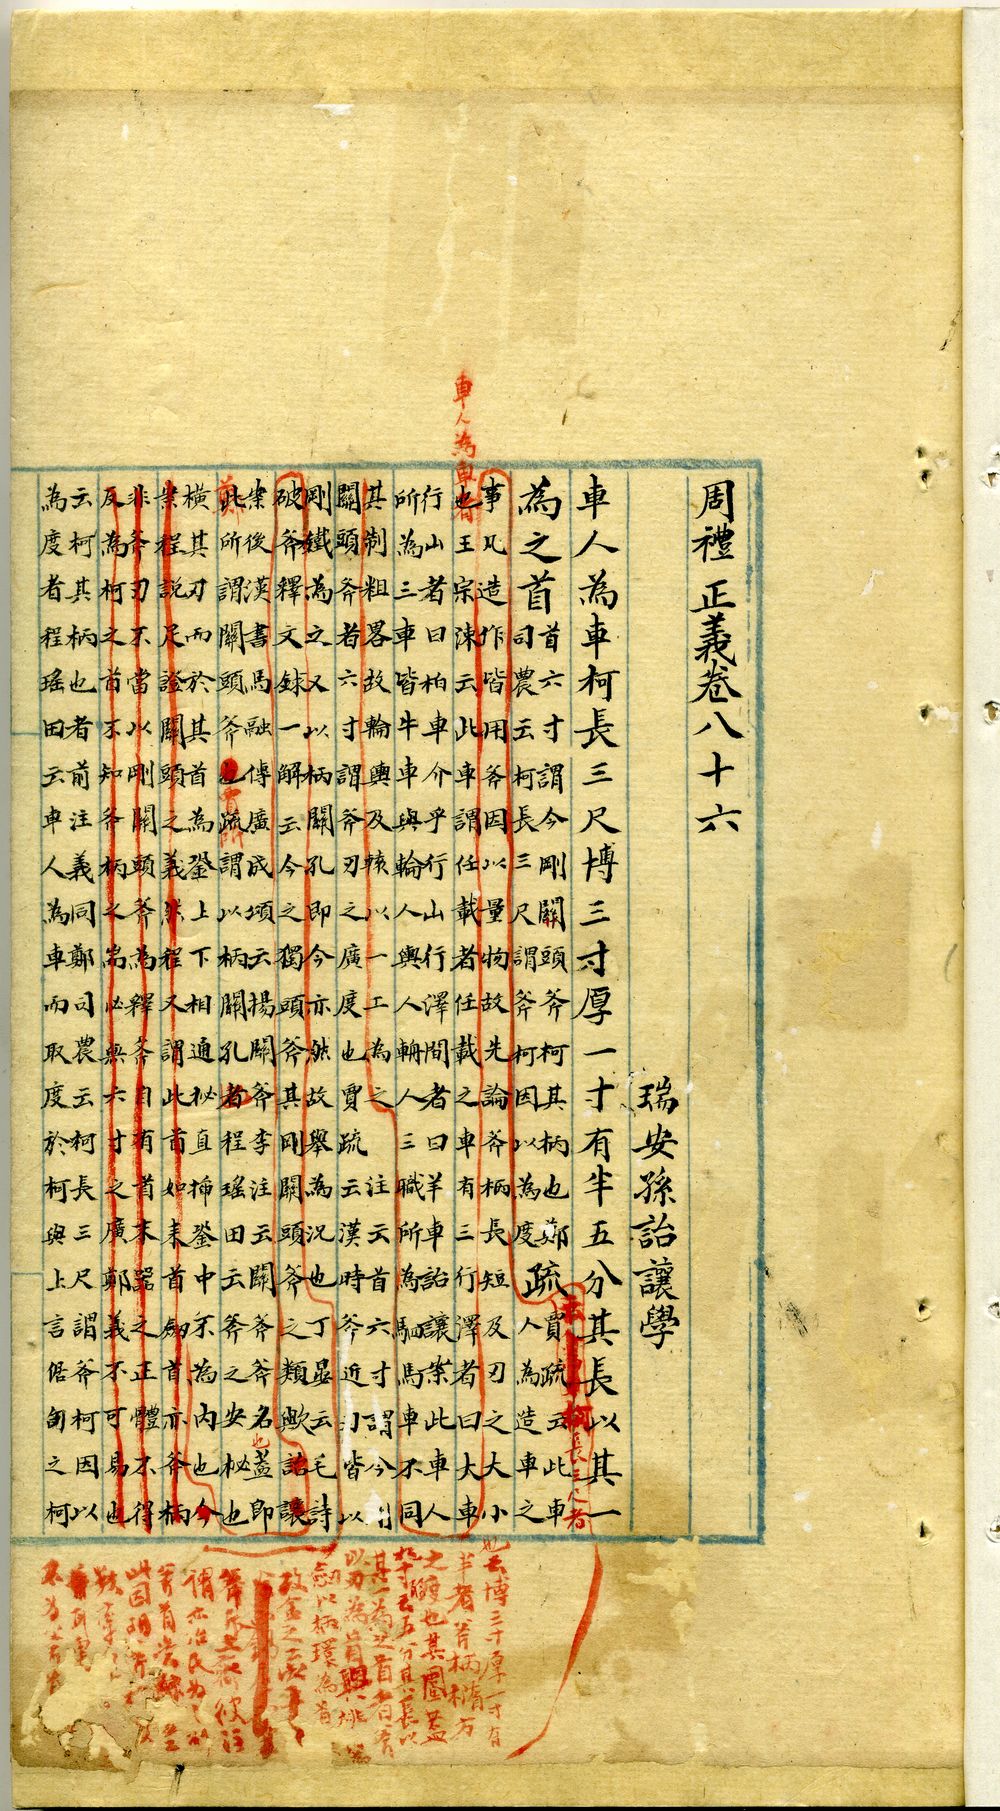 周禮正義卷八十六
瑞安孫詒讓學
車人為車柯長三尺博三寸厚一寸有半五分其長以其一
為之首
首六寸謂今剛關頭斧柯其柄也鄭
司農云柯長三尺謂斧柯因以為度
疏
賈疏云此車
人為造車之
事凡造作皆用斧因以量物故先論斧柄長短及刃之大小
也王宗涑云此車謂任載者任載之車有三行澤者曰大車
行山者曰柏車介乎行山行澤間者曰羊車詒讓案此車人
所為三車皆牛車與輪人輿人輈人三職所為駟馬車不同
其制粗畧故輪輿及輈以一工為之 注云首六寸謂今剛
關頭斧者六寸謂斧刃之廣度也賈疏云漢時斧近刃皆以
剛鐵為之又以柄關孔即今亦然故舉為況也丁晏云毛詩
破斧釋文銶一解云今之獨頭斧其剛關頭斧之類歟詒讓
案後漢書馬融傳廣成頌云揚關斧李注云關斧斧名也蓋即
此所謂關頭斧也賈疏謂以柄關孔者程瑤田云斧之安柲也
橫其刃而於其首為銎上下相通柲直揷銎中不為內也今
案程說足證關頭之義然程又謂此首如耒首劒首亦斧柄
非斧刃不當以剛關頭斧為釋斧自有首末器之正體不得
反為柯之首不知斧柄之耑必無六寸之廣鄭義不可易也
云柯其柄也者前注義同鄭司農云柯長三尺謂斧柯因以
為度者程瑤田云車人為車而取度於柯與上言倨句之柯
車人為車者
長三尺者
鄭
賈疏
也云博三寸厚一寸有
半者斧柄橢方
之度也其圍蓋
九寸云五分其長以
其一為之首者斧
以刃為首
劒以柄環為首